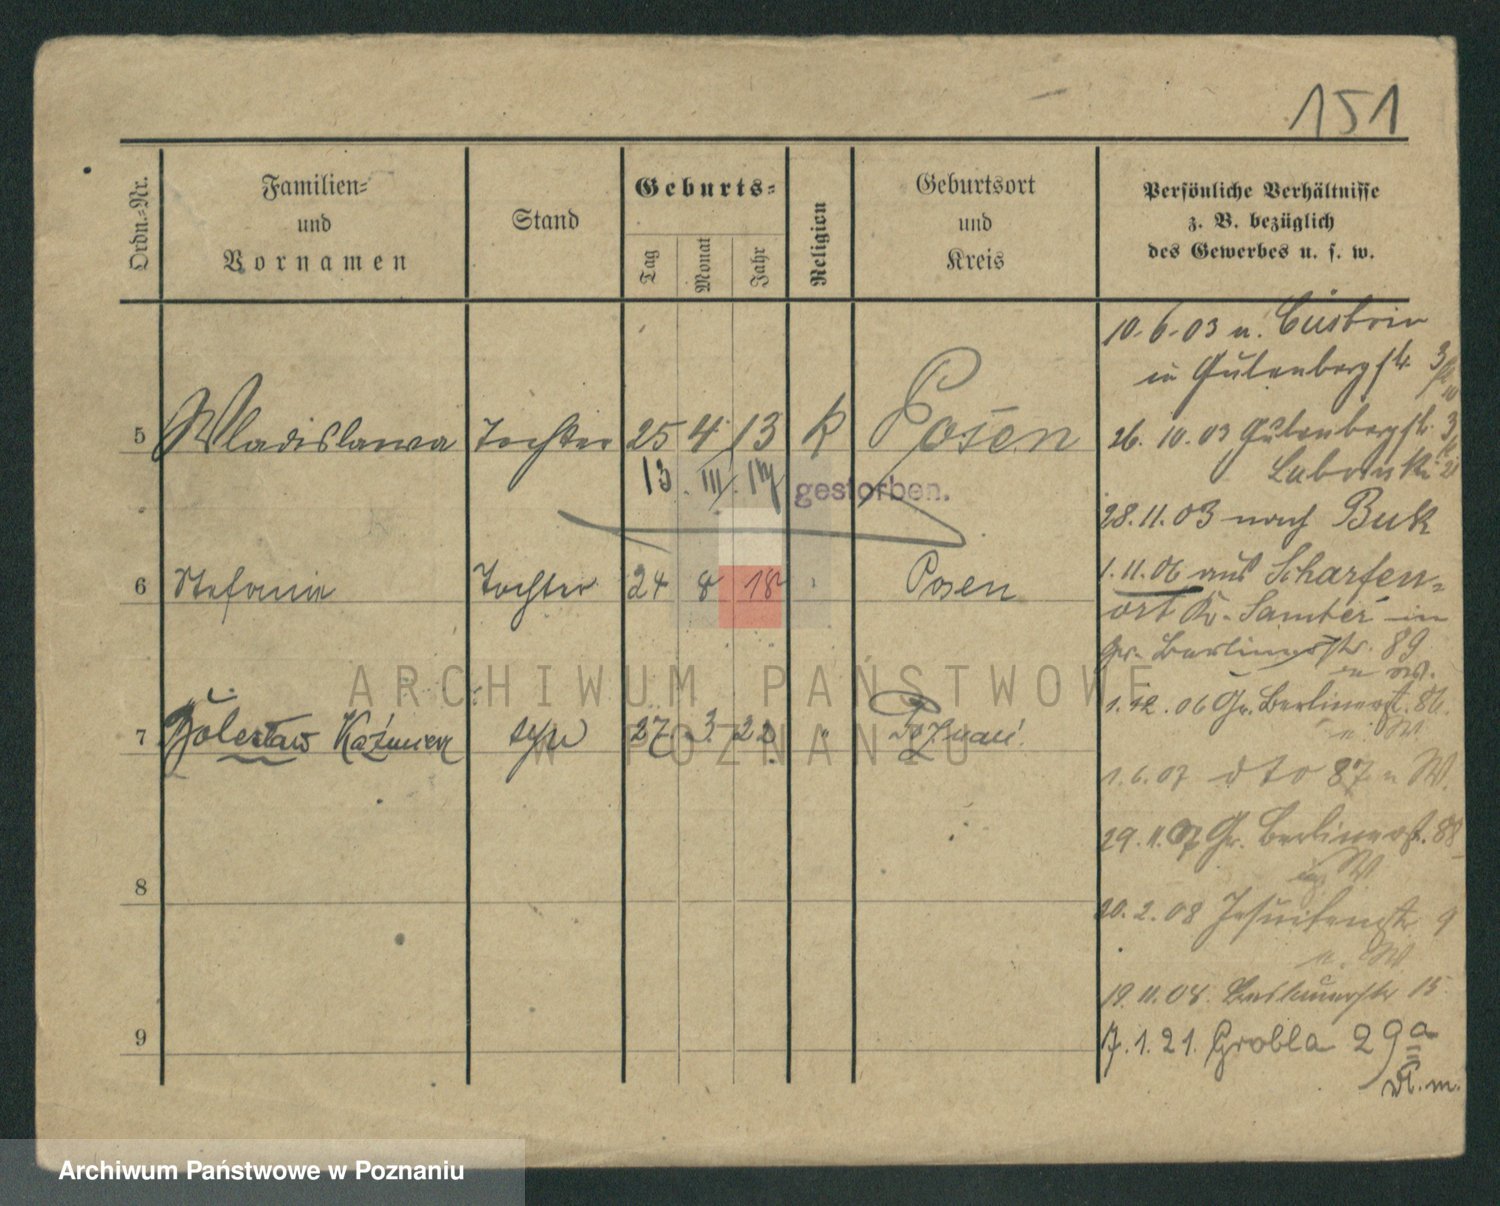 151
Ordn.-Nr.
Familien-
und
Vornamen
Stand
Geburts-
Tag
Monat
Jahr
Religion
Geburtsort
und
Kreis
Persönliche Verhältnisse
z. B. bezüglich
des Gewerbes u. s. w.
5 Wladislawa Tochter 25 4 13 k Posen
13. III. 17 gestorben.
6 Stefania Tochter 24 8 18 Posen
7 Bolesław Kaźmierz syn 27 3 22 " Poznań
8
9
10.6.03 v. Cüstrin
in Gutenbergstr. 3
26.10.03 Gutenbergstr. 3
28.11.03 nach Buk
1.11.06 aus Scharfen-
ort Kr. Samter in
Gr. Berlinerstr. 89
1.12.06 Gr. Berlinerst. 86.
1.6.07 dto 87 W.
29.11.07 Gr. Berlinerst. 88
W
20.2.08 Jesuitenstr 9
W
19.11.08 15
7.1.21. Grobla 29a
ARCHIWUM PAŃSTWOWE
W POZNANIU
Archiwum Państwowe w Poznaniu